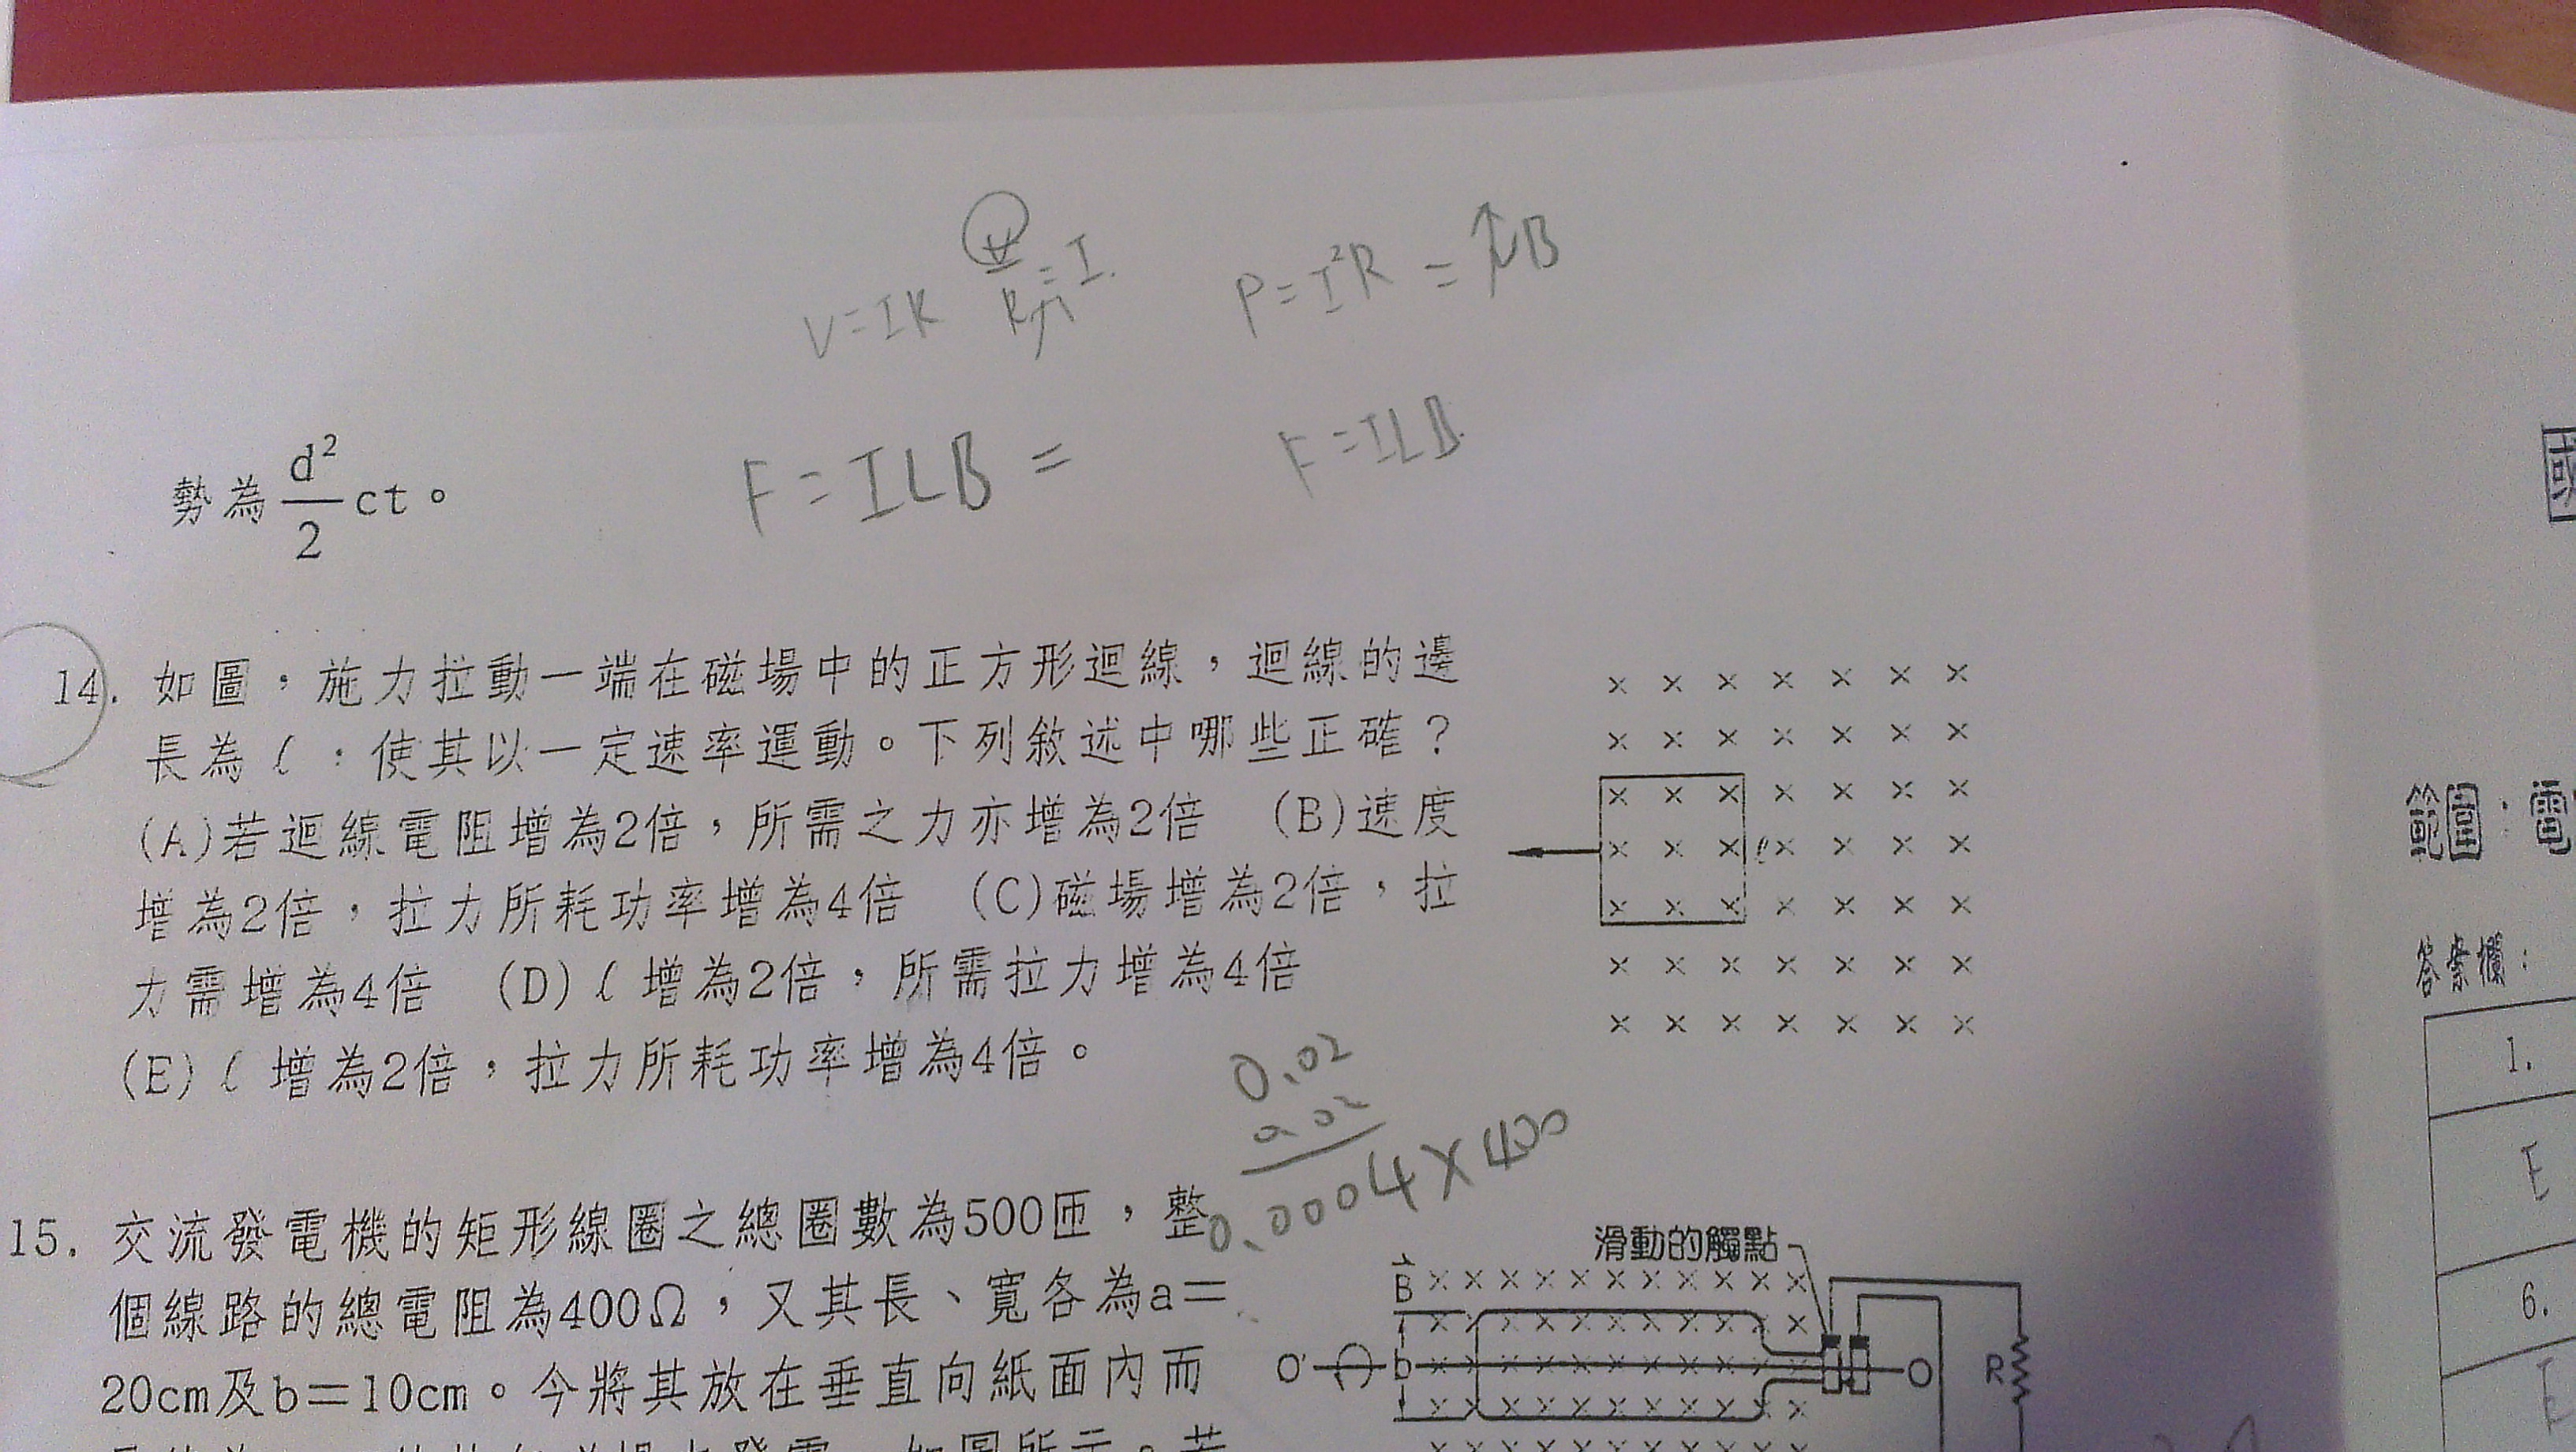 V=IR V/R=I
P=I²R=
F=ILB=
F=ILB
勢為d²/2 ct。
14. 如圖，施力拉動一端在磁場中的正方形迴線，迴線的邊
長為ℓ：使其以一定速率運動。下列敘述中哪些正確？
(A)若迴線電阻增為2倍，所需之力亦增為2倍 (B)速度
增為2倍，拉力所耗功率增為4倍 (C)磁場增為2倍，拉
力需增為4倍 (D)ℓ增為2倍，所需拉力增為4倍
(E)ℓ增為2倍，拉力所耗功率增為4倍。
ℓ
0.02
0.02
0.0004×400
15. 交流發電機的矩形線圈之總圈數為500匝，整
個線路的總電阻為400Ω，又其長、寬各為a＝
20cm及b＝10cm。今將其放在垂直向紙面內而
滑動的觸點
B
O' b O R
範圍：電
答案欄：
1.
E
6.
E